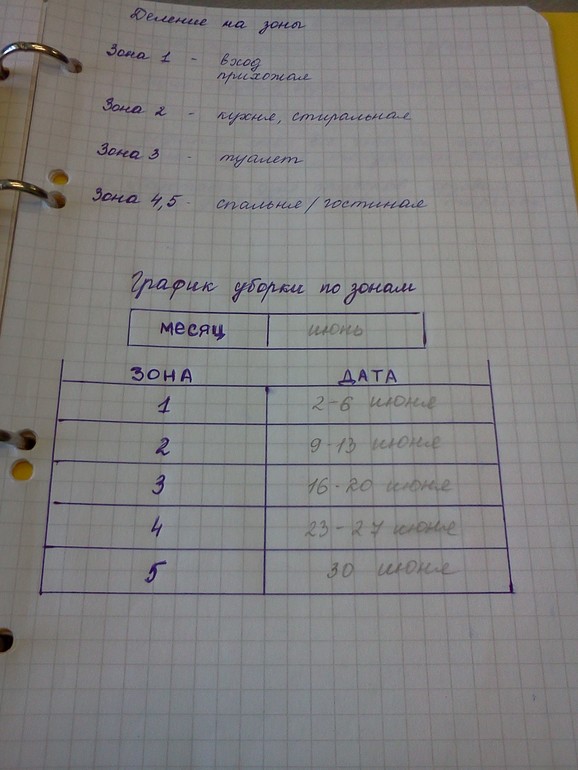 Деление на зоны
Зона 1 - вход
прихожая
Зона 2 - кухня, стиральная
Зона 3 - туалет
Зона 4,5 - спальня/гостиная
График уборки по зонам
месяц июнь
ЗОНА ДАТА
1 2-6 июня
2 9-13 июня
3 16-20 июня
4 23-27 июня
5 30 июня